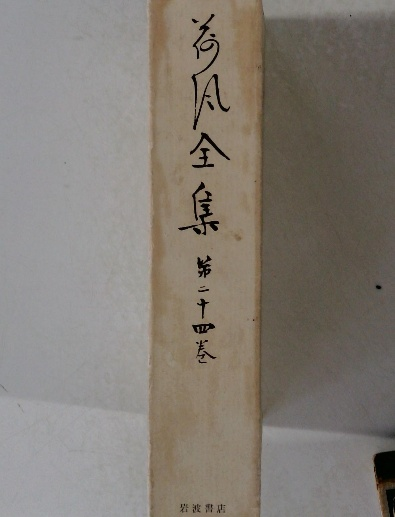 荷風全集
第二十四巻
岩波書店